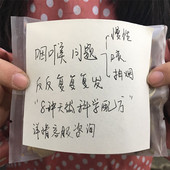 咽喉 问题
慢性
咳
抽烟
反反复复复发
"8种天按科学配方
详情客服咨询